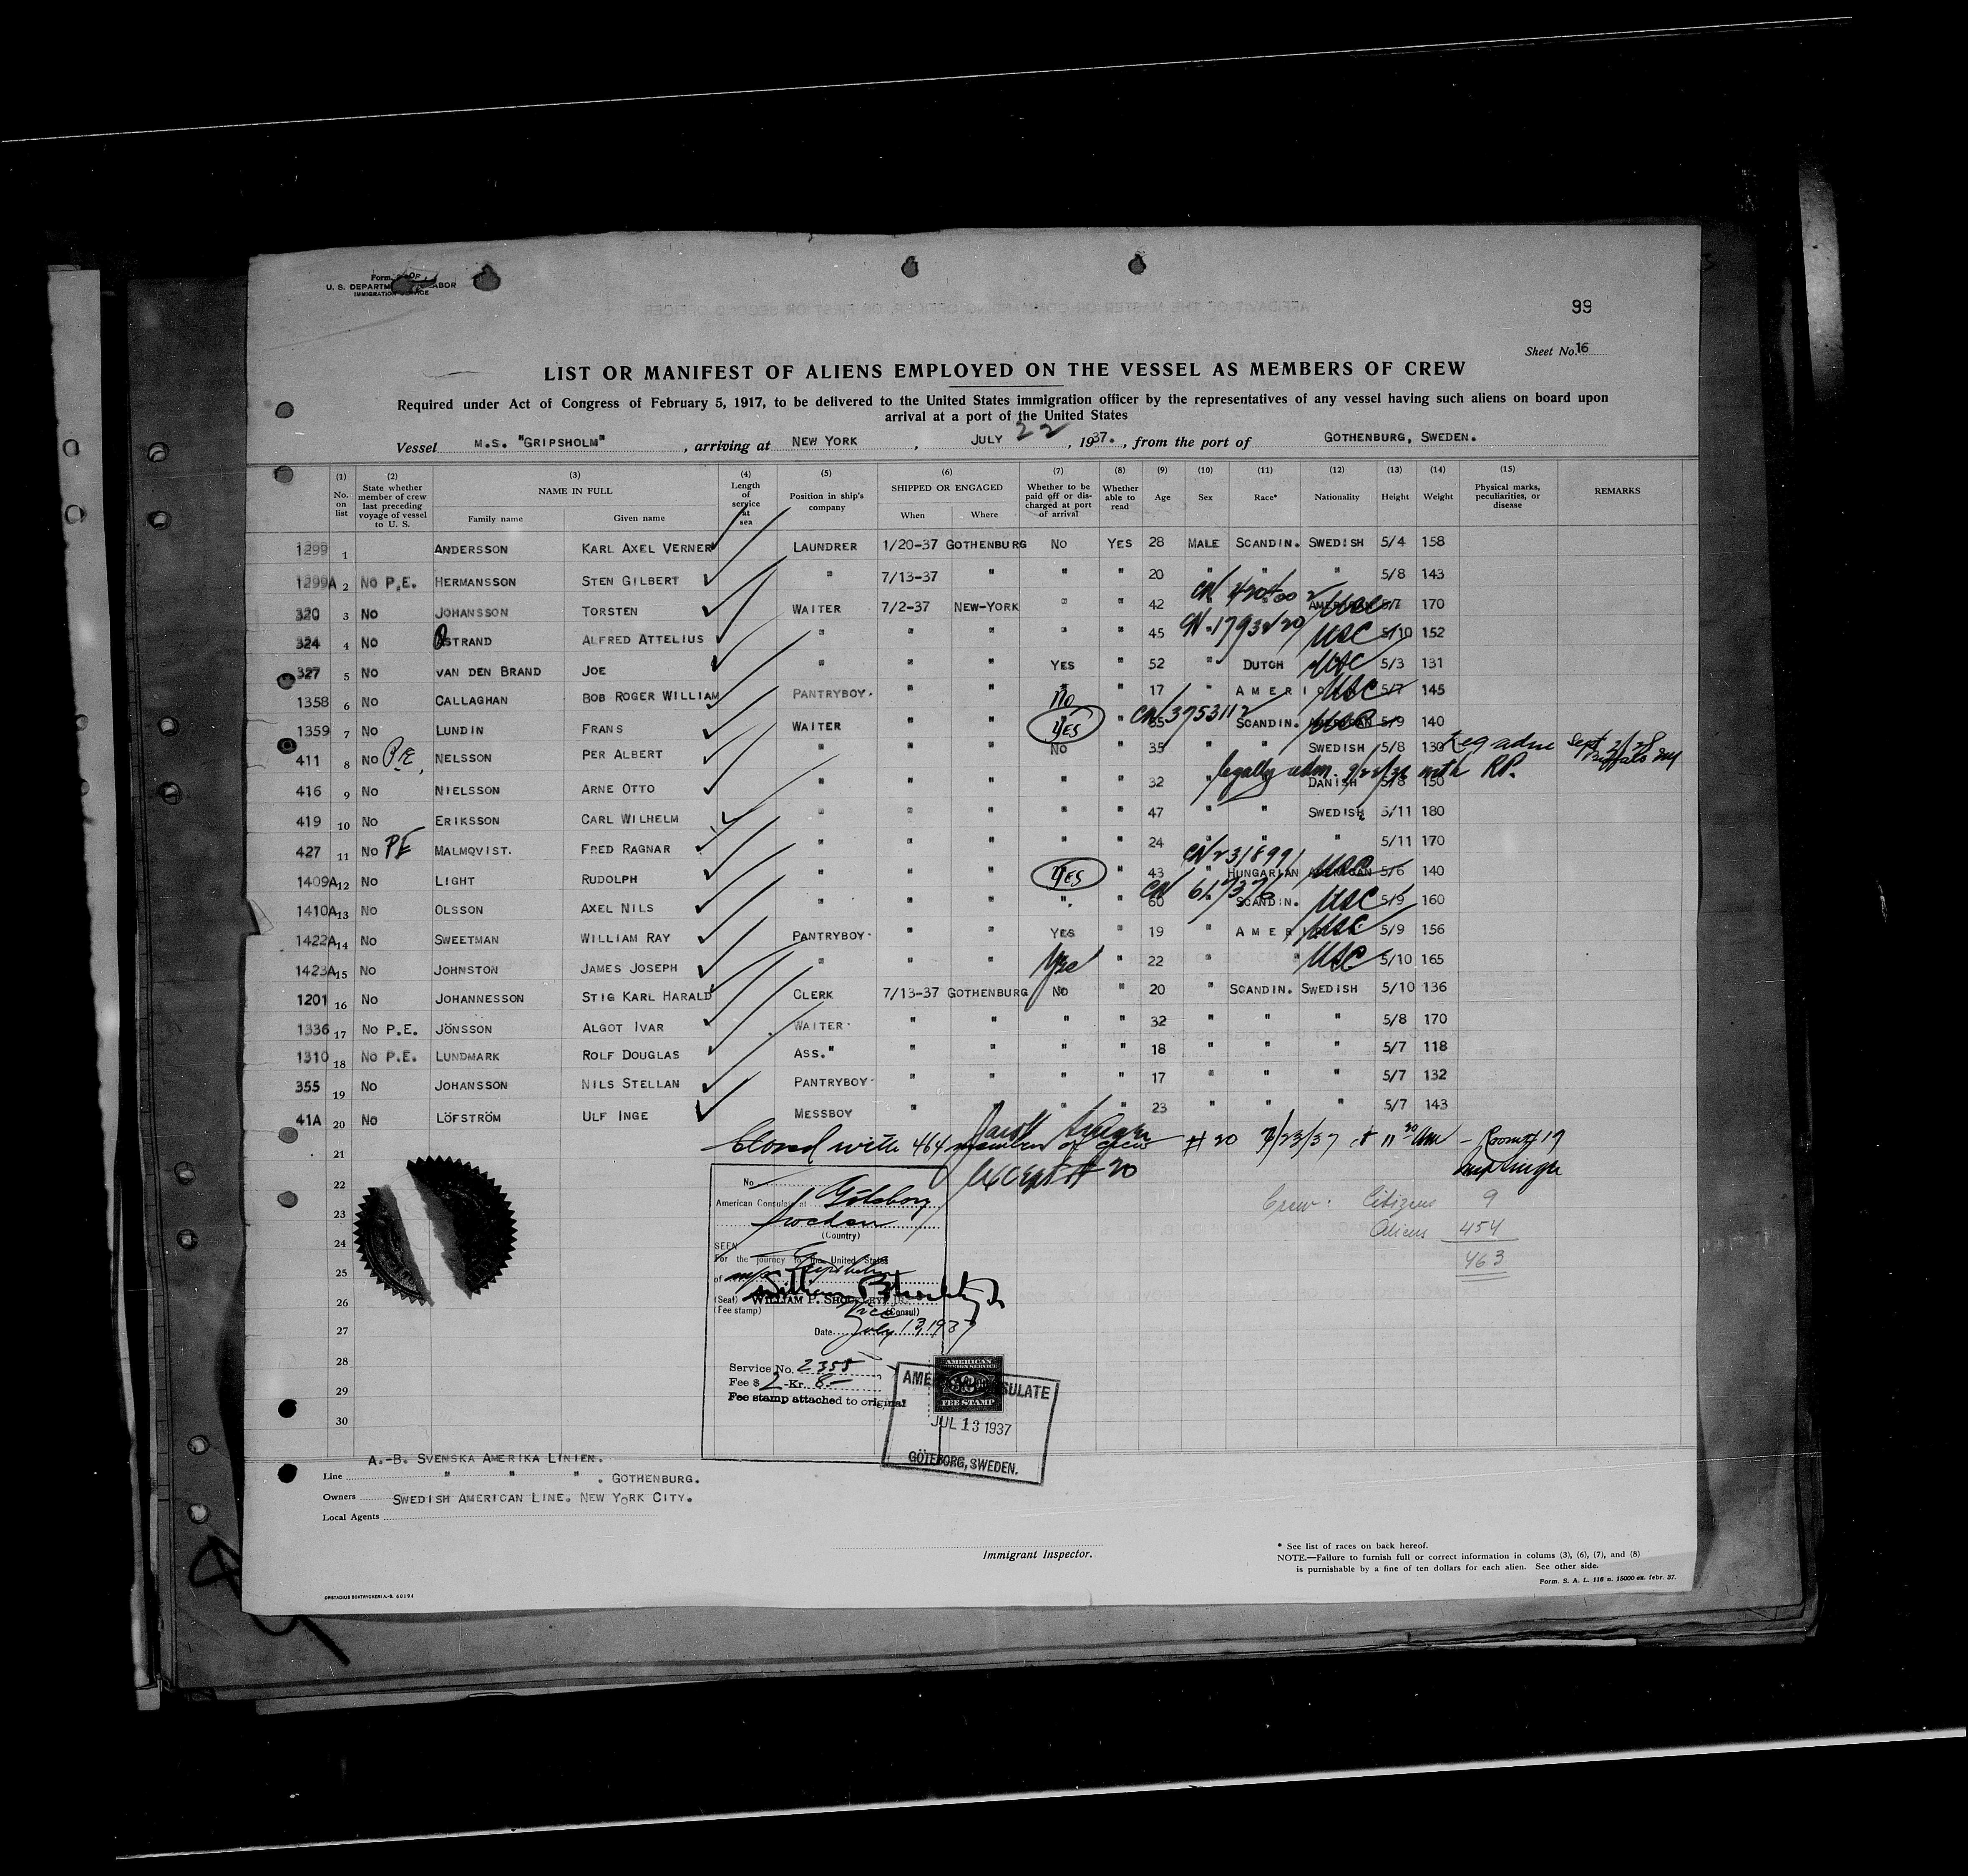 U. S. DEPARTM ABOR
IMMIGRATION SERVICE
99
Sheet No. 16
LIST OR MANIFEST OF ALIENS EMPLOYED ON THE VESSEL AS MEMBERS OF CREW
Required under Act of Congress of February 5, 1917, to be delivered to the United States immigration officer by the representatives of any vessel having such aliens on board upon
arrival at a port of the United States
Vessel M.S. "GRIPSHOLM" , arriving at NEW YORK , JULY 22 , 1937. , from the port of GOTHENBURG, SWEDEN.
(1) No. on list (2) State whether member of crew last preceding voyage of vessel to U. S. (3) NAME IN FULL Family name Given name (4) Length of service at sea (5) Position in ship's company (6) SHIPPED OR ENGAGED When Where (7) Whether to be paid off or discharged at port of arrival (8) Whether able to read (9) Age (10) Sex (11) Race* (12) Nationality (13) Height (14) Weight (15) Physical marks, peculiarities, or disease REMARKS
1299 1 ANDERSSON KARL AXEL VERNER LAUNDRER 1/20-37 GOTHENBURG NO YES 28 MALE SCANDIN. SWEDISH 5/4 158
1299A 2 NO P.E. HERMANSSON STEN GILBERT " 7/13-37 " " " 20 " " " 5/8 143
320 3 NO JOHANSSON TORSTEN WAITER 7/2-37 NEW-YORK " " 42 USC 5/7 170
324 4 NO ASTRAND ALFRED ATTELIUS " " " " " 45 USC 5/10 152
327 5 NO VAN DEN BRAND JOE " " " YES " 52 " DUTCH USC 5/3 131
1358 6 NO CALLAGHAN BOB ROGER WILLIAM PANTRYBOY. " " " " 17 " AMERI USC 5/7 145
1359 7 NO LUNDIN FRANS WAITER " " No YES " CN 3753112 SCANDIN. USC 5/9 140
411 8 NO P.E. NELSSON PER ALBERT " " " NO " 35 " " SWEDISH 5/8 130 Sept
416 9 NO NIELSSON ARNE OTTO " " " " " 32 " legally adm. with R.P. DANISH 5/8 150
419 10 NO ERIKSSON CARL WILHELM " " " " " 47 " " SWEDISH 5/11 180
427 11 NO PE MALMQVIST. FRED RAGNAR " " " " " 24 " " " 5/11 170
1409A 12 NO LIGHT RUDOLPH " " " YES " 43 CN 2318991 " HUNGARIAN USC 5/6 140
1410A 13 NO OLSSON AXEL NILS " " " " " 60 CN SCANDIN. USC 5/9 160
1422A 14 NO SWEETMAN WILLIAM RAY PANTRYBOY. " " YES " 19 " AMERI USC 5/9 156
1423A 15 NO JOHNSTON JAMES JOSEPH " " " Yes " 22 " " USC 5/10 165
1201 16 NO JOHANNESSON STIG KARL HARALD CLERK 7/13-37 GOTHENBURG NO " 20 " SCANDIN. SWEDISH 5/10 136
1336 17 NO P.E. JÖNSSON ALGOT IVAR WAITER. " " " " 32 " " " 5/8 170
1310 18 NO P.E. LUNDMARK ROLF DOUGLAS ASS." " " " " 18 " " " 5/7 118
355 19 NO JOHANSSON NILS STELLAN PANTRYBOY. " " " " 17 " " " 5/7 132
41A 20 NO LÖFSTRÖM ULF INGE MESSBOY " " " " 23 " " " 5/7 143
Closed with 464 members of crew # 20 7/23/37 at 11 AM - Room
except # 20
21
22
23
24
25
26
27
28
29
30
Crew: Citizens 9
Aliens 454
463
No.
American Consulate at Göteborg
Sweden
(Country)
SEEN
For the journey to the United States
of m/s Gripsholm
(Seal) WILLIAM P. SHOCKLEY, JR.
(Fee stamp) Vice (Consul)
Date July 13, 1937
Service No. 2355
Fee $ 2 -Kr. 8-
Fee stamp attached to original
AMERICAN FOREIGN SERVICE
FEE STAMP
AMERICAN CONSULATE
JUL 13 1937
GÖTEBORG, SWEDEN.
A.-B. SVENSKA AMERIKA LINIEN.
Line " " " . GOTHENBURG.
Owners SWEDISH AMERICAN LINE. NEW YORK CITY.
Local Agents
Immigrant Inspector.
* See list of races on back hereof.
NOTE.—Failure to furnish full or correct information in colums (3), (6), (7), and (8)
is punishable by a fine of ten dollars for each alien. See other side.
Form. S. A. L. 116 n. 15000 ex. febr. 37.